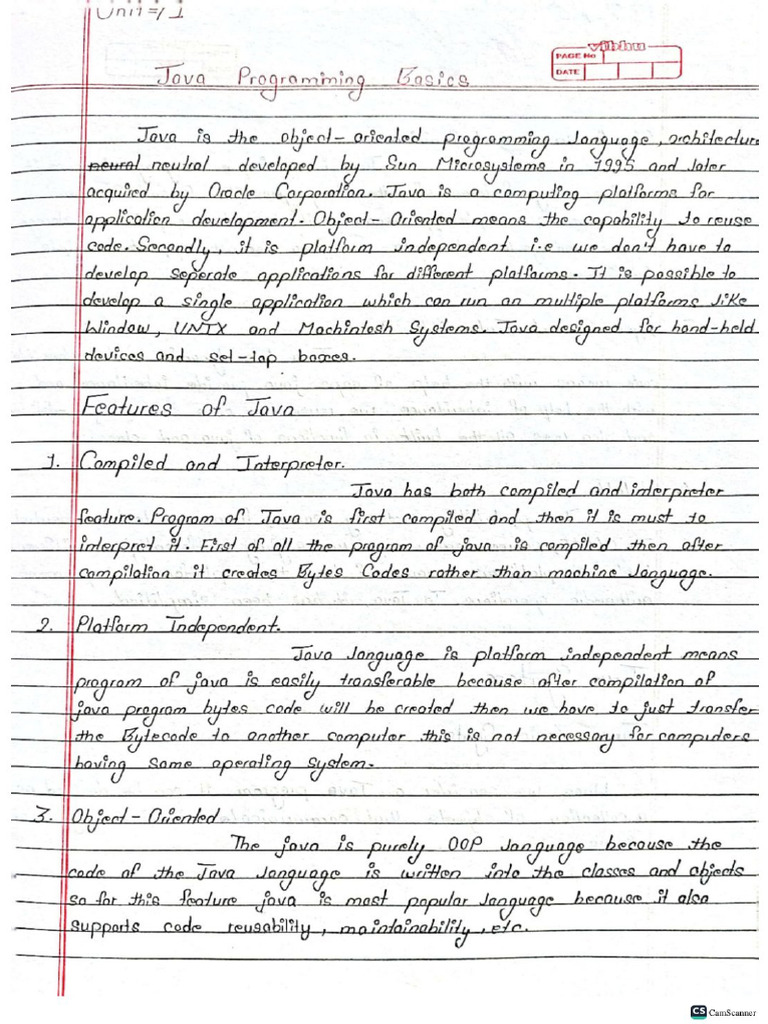 Unit=/1
vibhu
PAGE No
DATE
Java Programming Basics
Java is the object-oriented programming language, architecture
neural neutral developed by Sun Microsystems in 1995 and later
acquired by Oracle Corporation. Java is a computing platforms for
application development. Object-Oriented means the capability to reuse
code. Secondly, it is platform independent i.e we don't have to
develop seperate applications for different platforms. It is possible to
develop a single application which can run on multiple platforms like
Window, UNIX and Machintosh Systems. Java designed for hand-held
devices and set-top boxes.
Features of Java
1. Compiled and Interpreter.
Java has both compiled and interpreter
feature. Program of Java is first compiled and then it is must to
interpret it. First of all the program of java is compiled then after
compilation it creates Bytes Codes rather than machine language.
2. Platform Independent.
Java language is platform independent means
program of java is easily transferable because after compilation of
java program bytes code will be created then we have to just transfer
the Bytecode to another computer this is not necessary for computers
having same operating system.
3. Object-Oriented
The java is purely OOP language because the
code of the Java language is written into the classes and objects
so for this feature java is most popular language because it also
supports code reusability, maintainability, etc.
CS CamScanner